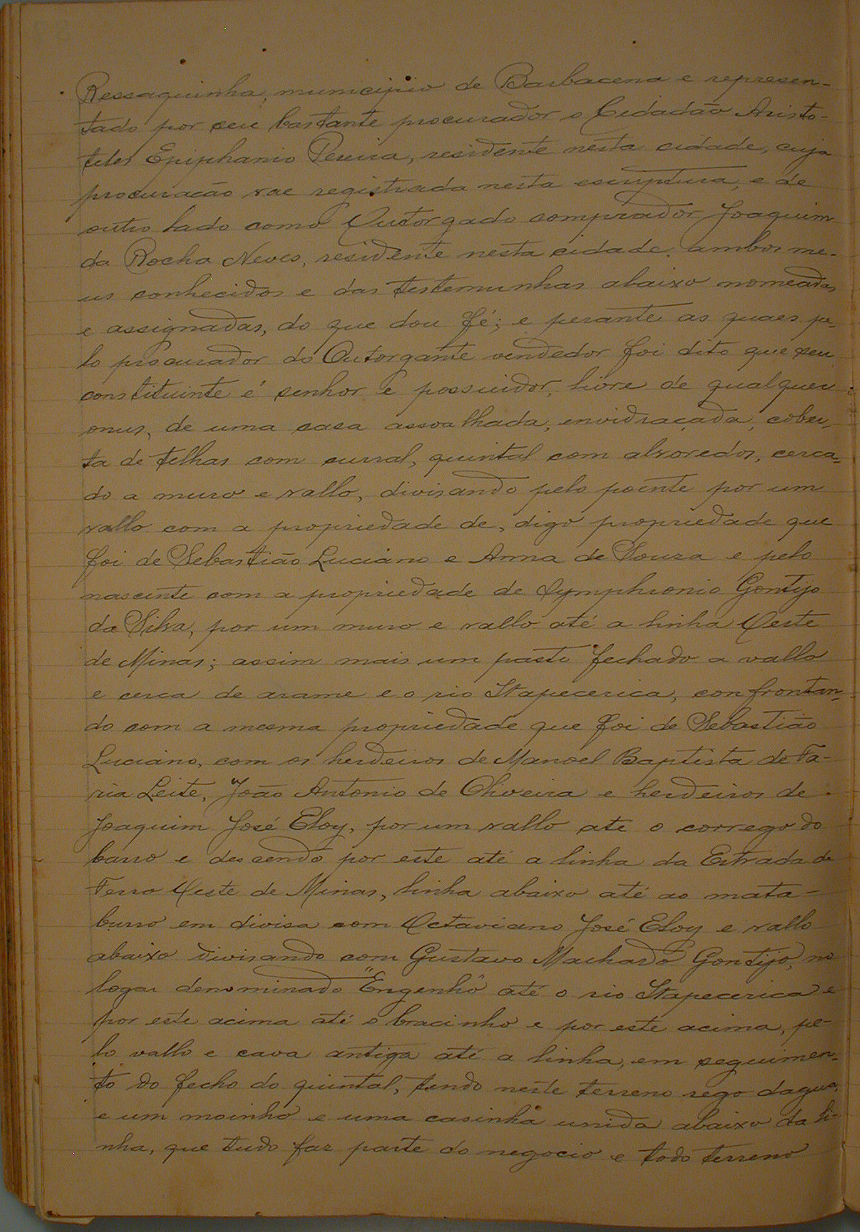 Ressaquinha, municipio de Barbacena e represen-
tado por seu bastante procurador o Cidadão Aristo-
teles Epiphanio Pereira, residente nesta cidade, cuja
procuração vae registrada nesta escriptura, e de
outro lado como Outorgado comprador Joaquim
da Rocha Neves, residente nesta cidade, ambos me-
us conhecidos e das testemunhas abaixo nomeadas
e assignadas, do que dou fé; e perante as quaes pe-
lo procurador do Outorgante vendedor foi dito que seu
constituinte é senhor e possuidor, livre de qualquer
onus, de uma casa assoalhada, envidraçada, cober-
ta de telhas com curral, quintal com alvoredos, cerca-
do a muro e vallo, divisando pelo poente por um
vallo com a propriedade de, digo propriedade que
foi de Sebastião Luciano e Anna de Souza e pelo
nascente com a propriedade de Symphronio Gontijo
da Silva, por um muro e vallo até a linha Oeste
de Minas; assim mais um pasto fechado a vallo
e cerca de arame e o rio Itapecerica, confrontan-
do com a mesma propriedade que foi de Sebastião
Luciano, com os herdeiros de Manoel Baptista de Fa-
ria Leite, João Antonio de Oliveira e herdeiros de
Joaquim José Eloy, por um vallo até o corrego do
barro e descendo por este até a linha da Estrada de
Ferro Oeste de Minas, linha abaixo até ao mata-
burro em divisa com Octaviano José Eloy e vallo
abaixo divisando com Gustavo Machado Gontijo, no
logar denominado "Engenho" até o rio Itapecerica e
por este acima até o bracinho e por este acima, pe-
lo vallo e cava antiga até a linha, em seguimen-
to do fecho do quintal, tendo neste terreno rego dagua,
e um moinho e uma casinha unida abaixo da li-
nha, que tudo faz parte do negocio e todo terreno